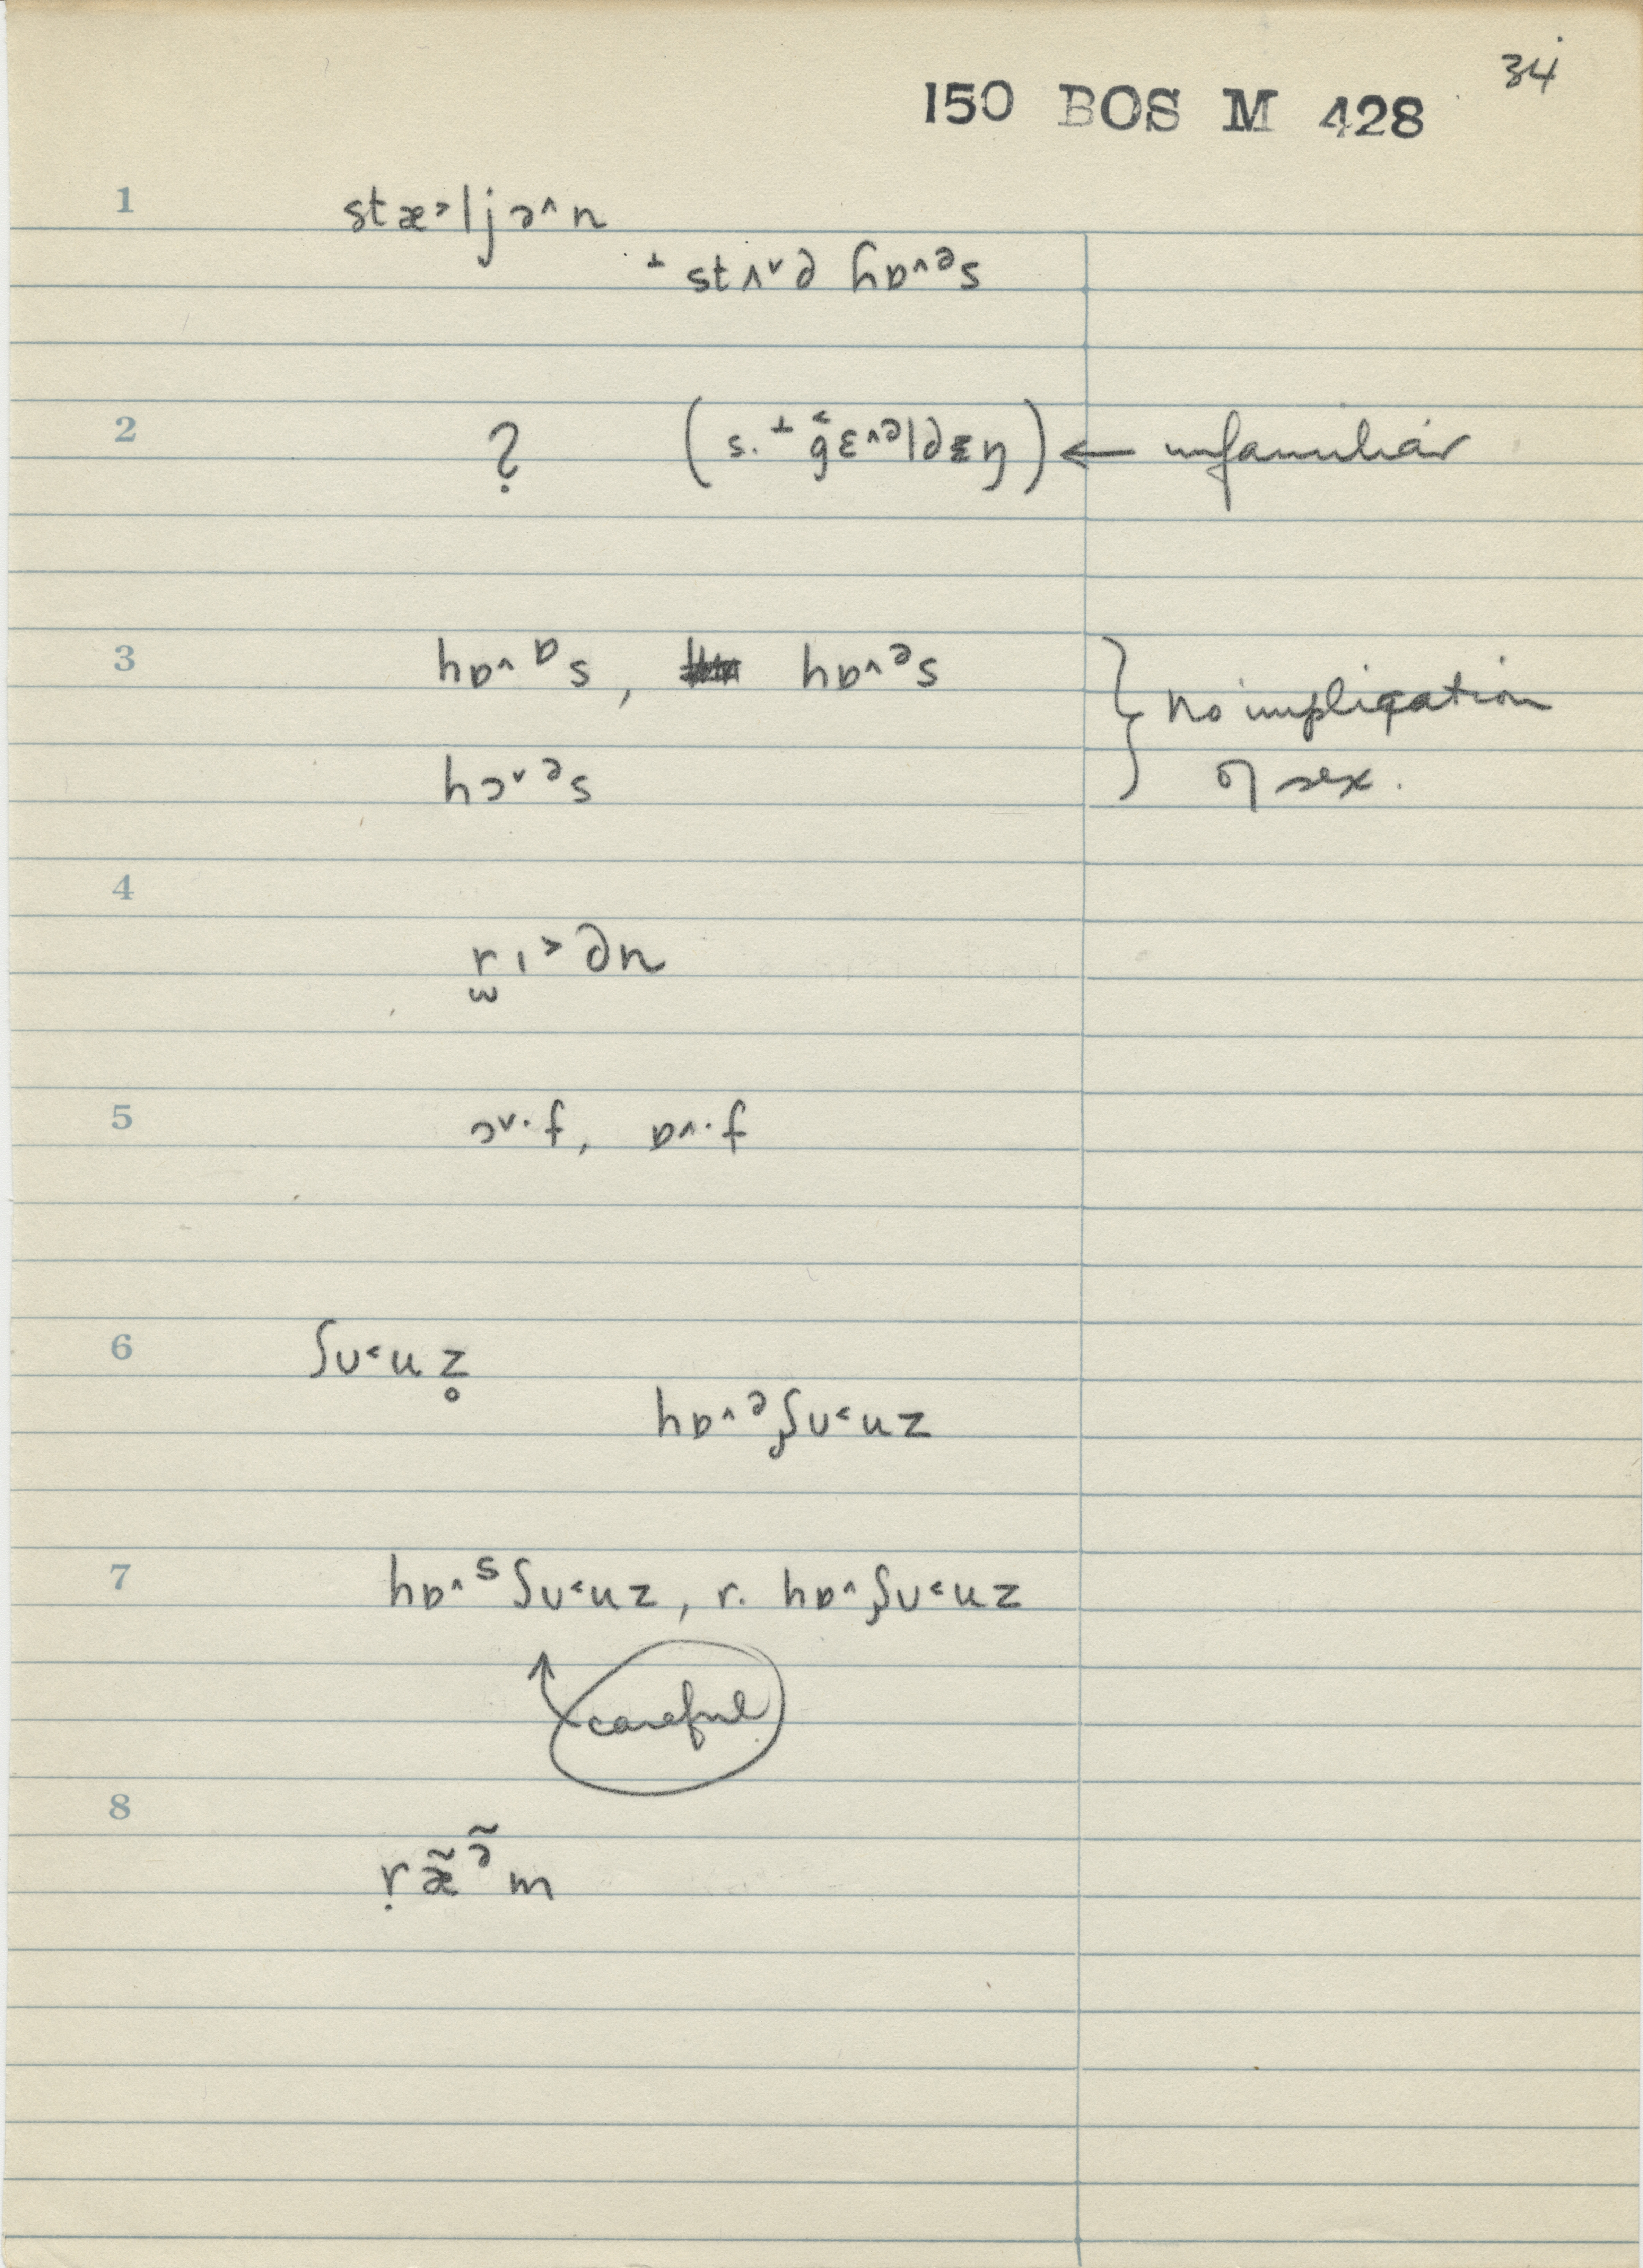 34
150 BOS M 428
1 stæ˃ljə˄n
⊥ stʌ˅d hɒ˄ᵊs
2 ? (s. ⊥ g̑ɛ˄ᵊldɪŋ) ← unfamiliar
3 hɒ˄ᶛs, hɒ˄ᵊs } No implication
hɔ˅ᵊs of sex.
4
r̫ɪ˃ən
5 ɔ˅·f, ɒ˄·f
6 ʃʊ˂uz̥
hɒ˄ᵊʃʊ˂uz
7 hɒ˄ˢʃʊ˂uz, r. hɒ˄ʃʊ˂uz
careful
8
ṛæ̃ᵊ̃m